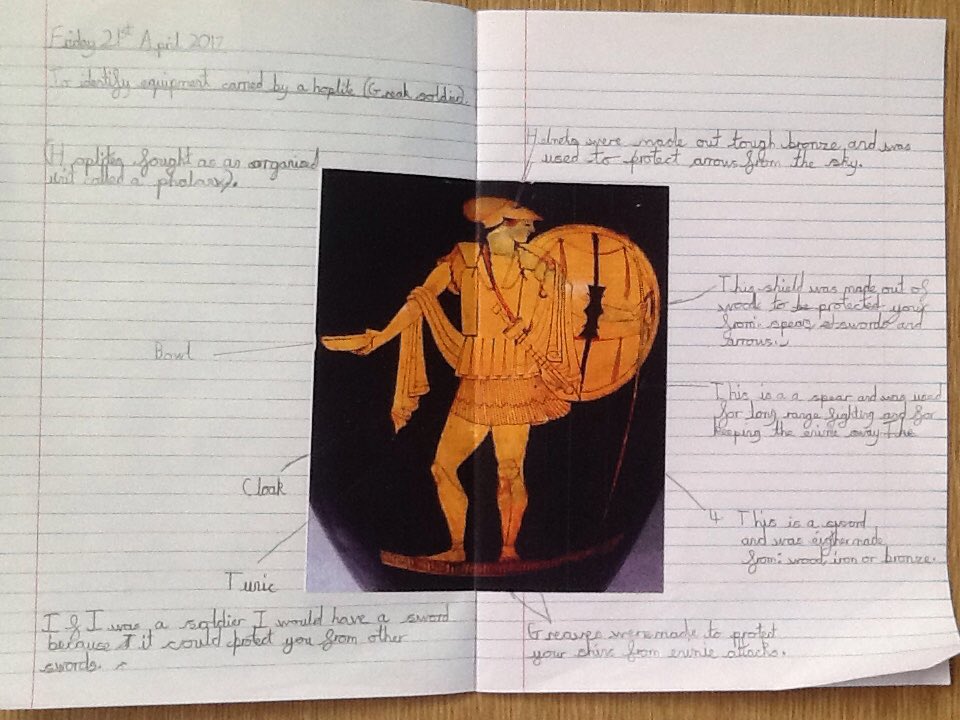 Friday 21st April 2017
To identify equipment carried by a hoplite (Greak soldier).
(Hoplites fought as an organised
unit called a phalanx).
Bowl
Cloak
Tunic
If I was a soldier I would have a sword
because it could protect you from other
swords.
Helmets were made out tough bronze and was
used to protect arrows from the sky.
This shield was made out of
wook to be protected your
from: spears swords and
arrows.
This is a a spear and was used
for long range fighting and for
keeping the enime away The
4 This is a sword
and was eigher made
from: wood, iron or bronze.
Greaves were made to protect
your shins from enimie attacks.